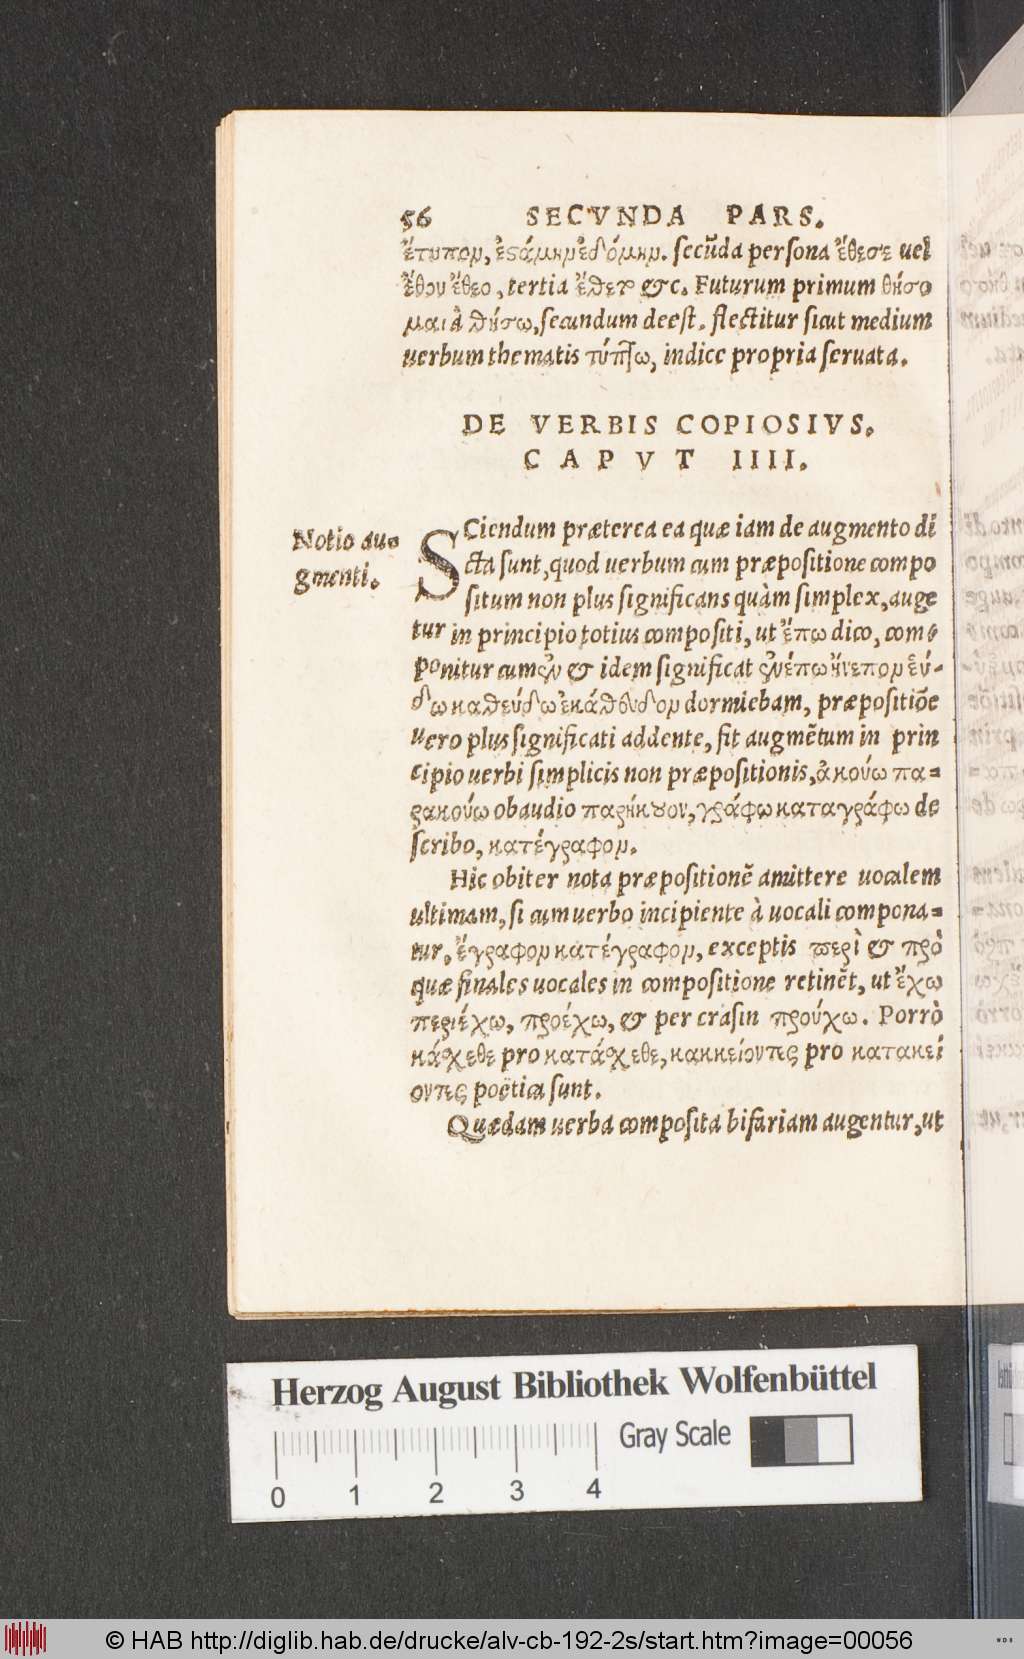 56 SECVNDA PARS.
ἔτυπον, ἐςάμην ἐδόμην. secūda persona ἔθεσε uel
ἔθου ἔθεο, tertia ἔθετ &c. Futurum primum θήσο
μαι à θήσω, secundum deest. flectitur sicut medium
uerbum thematis τύπτω, indice propria seruata.
DE VERBIS COPIOSIVS.
CAPVT IIII.
Notio au-
gmenti.
SCiendum præterea ea quæ iam de augmento di
cta sunt, quod uerbum cum præpositione compo
situm non plus significans quàm simplex, auge
tur in principio totius compositi, ut ἔπω dico, com-
ponitur cum ἐν & idem significat ἐνέπω ἤνεπον εὕ-
δω καθεύδω ἐκάθευδον dormiebam, præpositiōe
uero plus significati addente, fit augmētum in prin
cipio uerbi simplicis non præpositionis, ἀκούω πα-
ρακούω obaudio παρήκȣον, γράφω καταγράφω de
scribo, κατέγραφον.
Hic obiter nota præpositionē amittere uocalem
ultimam, si cum uerbo incipiente à uocali compona-
tur, ἔγραφον κατέγραφον, exceptis ϖερὶ & πρὸ
quæ finales uocales in compositione retinēt, ut ἔχω
περιέχω, προέχω, & per crasin προύχω. Porrò
κάσχεθε pro κατάσχεθε, κακκείοντες pro κατακεί
οντες poëtica sunt.
Quædam uerba composita bifariam augentur, ut
Herzog August Bibliothek Wolfenbüttel
Gray Scale
0 1 2 3 4
© HAB http://diglib.hab.de/drucke/alv-cb-192-2s/start.htm?image=00056